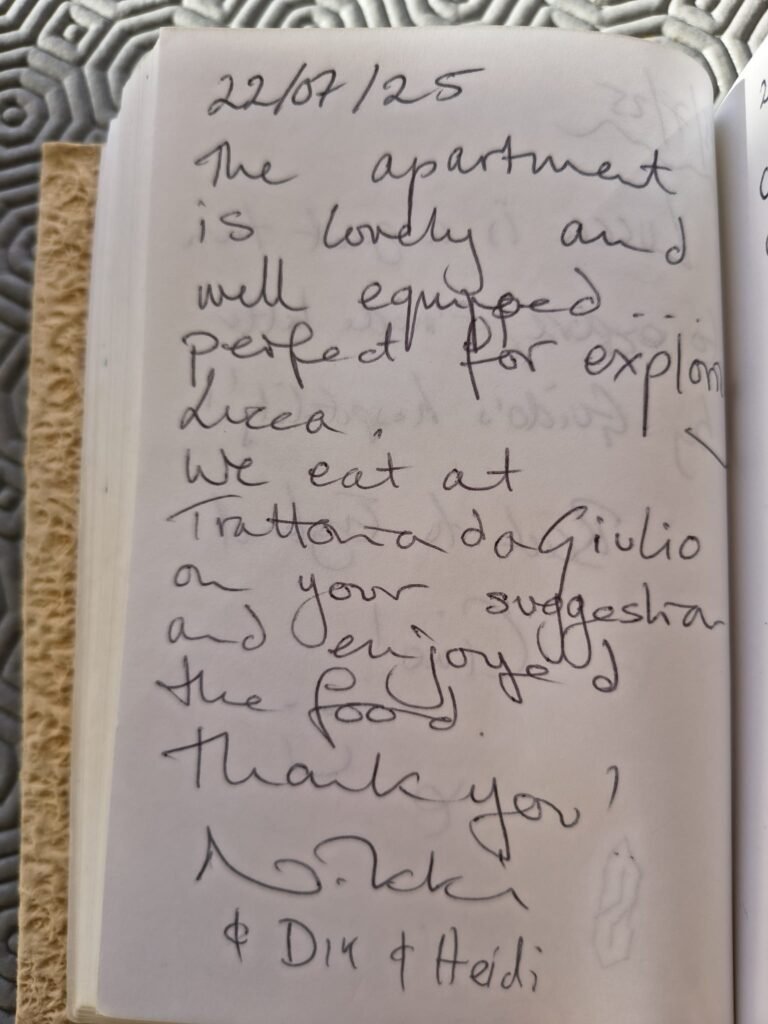 22/07/25
The apartment
is lovely and
well equipped...
perfect for explorin
Lucca.
We eat at
Trattoria da Giulio
on your suggestion
and enjoyed
the food.
Thank you!
Nikki
& Dik & Heidi